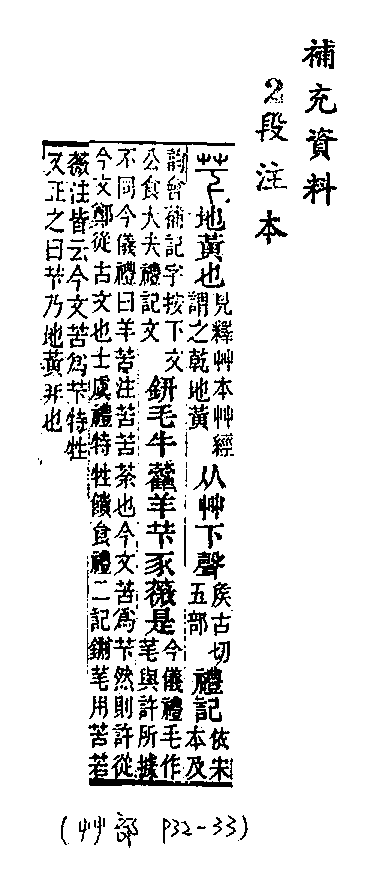 補充資料
2段注本
芐地黃也見釋艸本艸經謂之乾地黃从艸下聲矦古切五部禮記依宋本及
韵會補記字按下文公食大夫禮記文鈃毛牛藿羊芐豕薇是今儀禮毛作芼與許所據
不同今儀禮曰羊苦注苦苦荼也今文苦爲芐然則許從
今文鄭從古文也士虞禮特牲饋食禮二記鉶芼用苦若
薇注皆云今文苦爲芐特牲
又正之曰芐乃地黃非也
(艸部 P32-33)